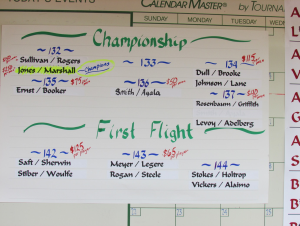 TODAY'S EVENTS
CALENDAR MASTER® by TOURNA
SUNDAY MONDAY TUESDAY WEDNES
Championship
~132~
Sullivan / Rogers
Jones / Marshall - Champions
~135~ $75
Ernst / Booker
~133~
~136~ $50
Smith / Ayala
~134~ $115
Dull / Brooke
Johnson / Lane
~137~ $40
Rosenbaum / Griffith
Levoy / Adelberg
First Flight
~142~ $125
Saft / Sherwin
Stiber / Woulfe
~143~ $65
Meyer / Legere
Rogan / Steele
~144~
Stokes / Holtrop
Vickers / Alaimo